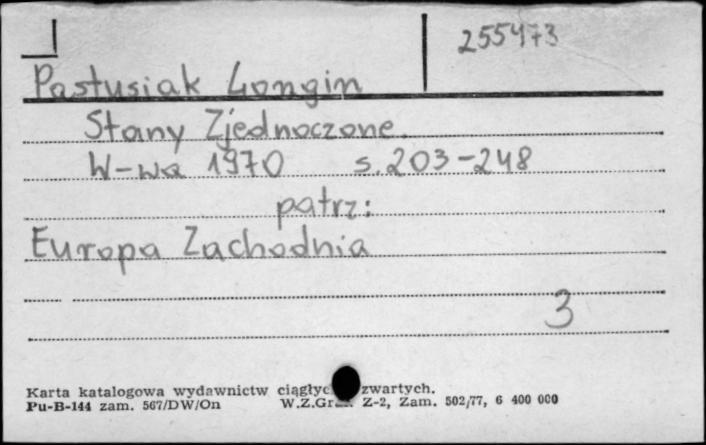 255473
Pastusiak Longin
Stany Zjednoczone.
W-wa 1970 s. 203-248
patrz:
Europa Zachodnia
3
Karta katalogowa wydawnictw zwartych.
Pu-B-144 zam. 567/DW/On W.Z.Graf. Z-2, Zam. 502/77, 6 400 000